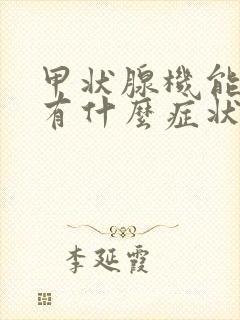 甲状腺機能
有什麼症状
李延霞